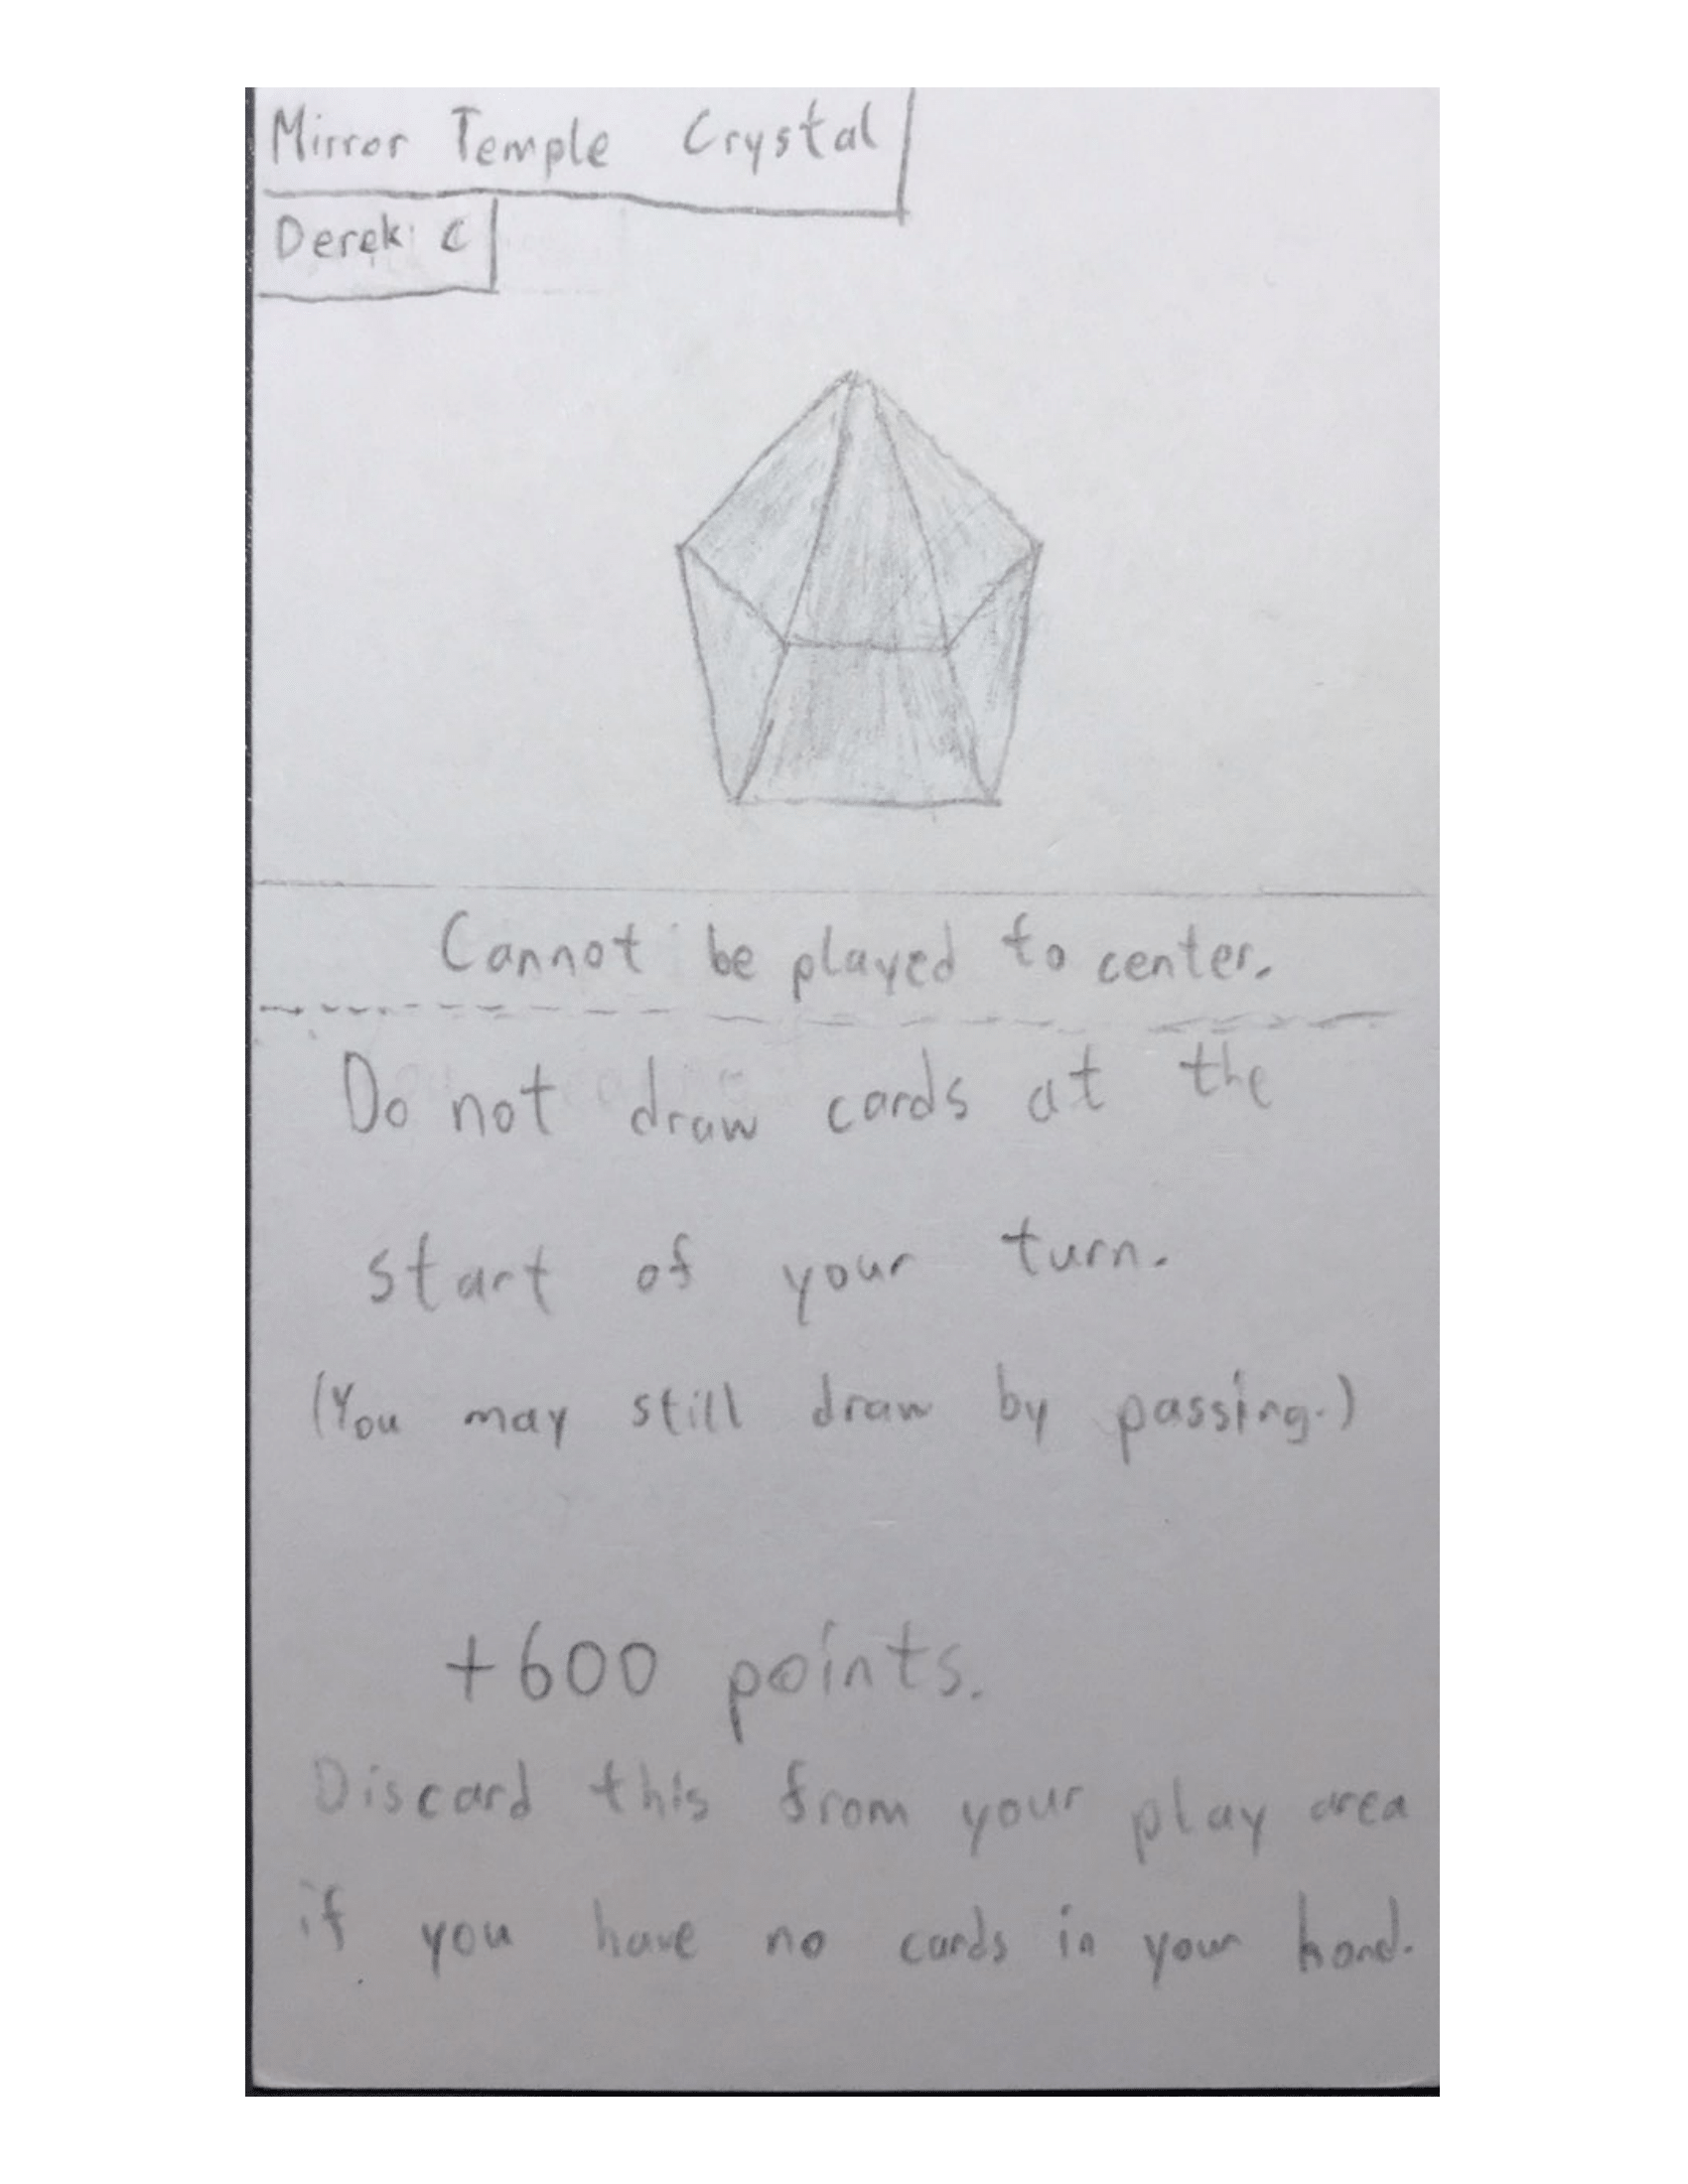 Mirror Temple Crystal
Derek C
Cannot be played to center.
Do not draw cards at the
start of your turn.
(You may still draw by passing.)
+600 points.
Discard this from your play area
if you have no cards in your hand.